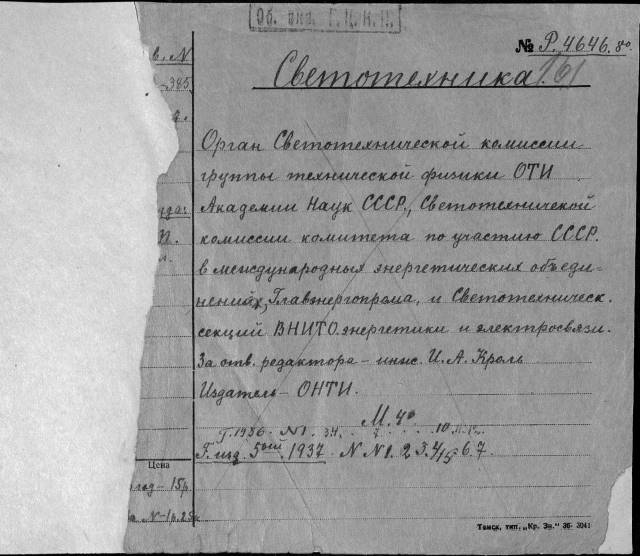 Об. кни. Г.Ц.К.П.
№ Р. 4646. 80.
в. N
Светотехника. 161
385
Орган Светотехнической комиссии
группы технической физики ОТИ
Академии Наук СССР, Светотехничекой
комиссии комитета по участию СССР.
в международных энергетических объеди-
нениях, Главэнергопрома, и Светотехническ.
секций ВНИТО энергетики и электросвязи.
За отв. редактора – инж. И. А. Кроль
Издатель – ОНТИ.
М. 4º
Г. 1936 - N1. 3.4. 7 10
Г. изд. 5ый. 1937. N N 1. 2 3. 4/5 6. 7
Цена
год – 15р
N – 1р. 25к
Томск, тип. „Кр. Зн." 36- 3041